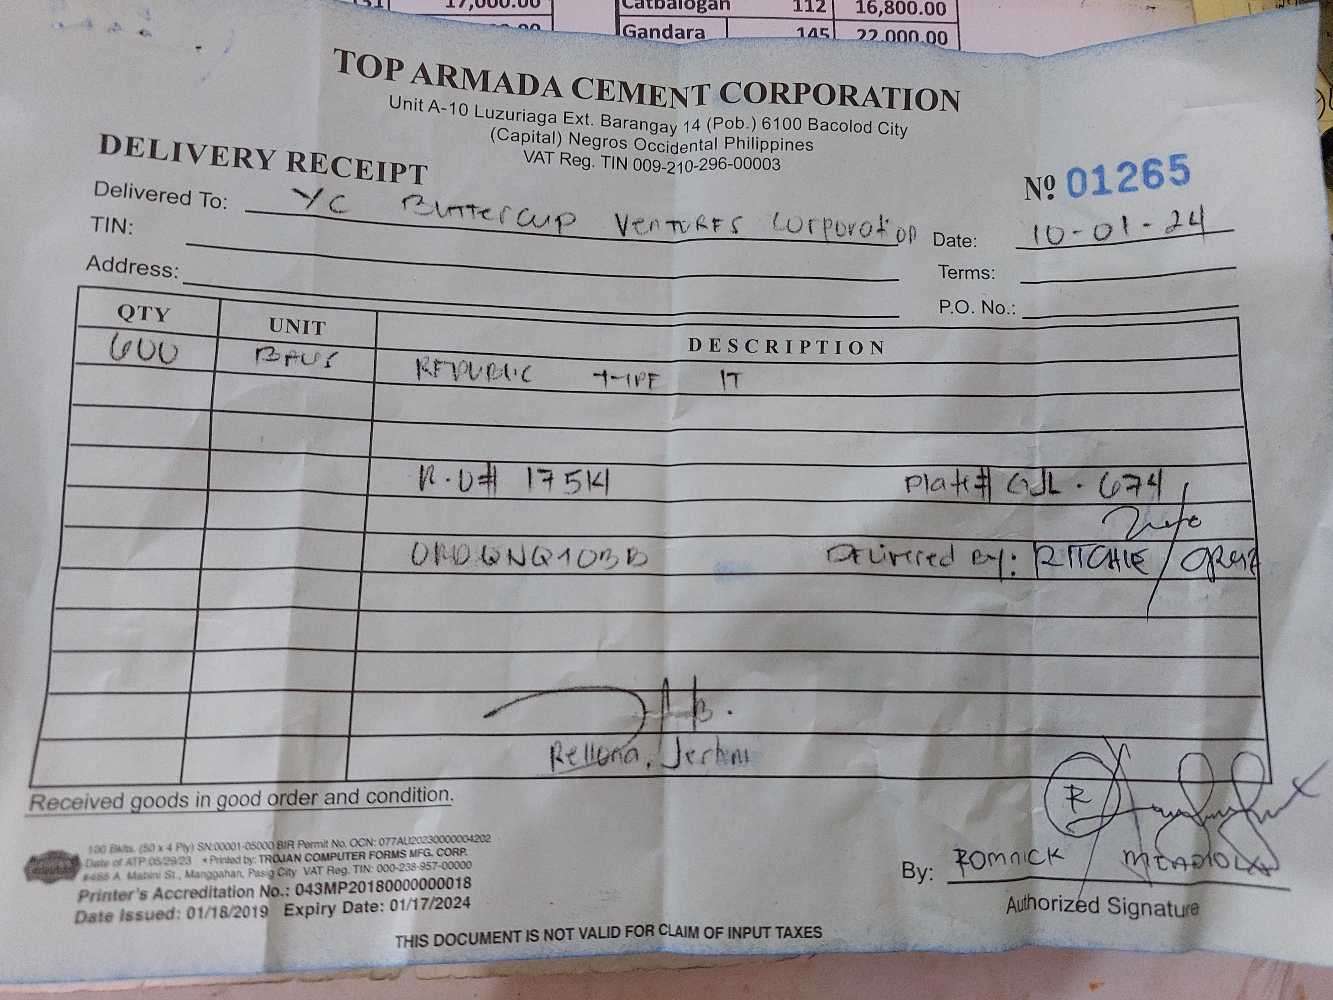 17,000.00
Catbalogan 112 16,800.00
Gandara 145 22,000.00
TOP ARMADA CEMENT CORPORATION
Unit A-10 Luzuriaga Ext. Barangay 14 (Pob.) 6100 Bacolod City
(Capital) Negros Occidental Philippines
VAT Reg. TIN 009-210-296-00003
DELIVERY RECEIPT
Nº 01265
Delivered To: YC Buttercup Ventures Corporation
Date: 10-01-24
TIN:
Terms:
Address:
P.O. No.:
QTY UNIT DESCRIPTION
600 BAGS REPUBLIC TYPE 1T
Plate# GJL . 674
Delivered By: RITCHIE
Rellona,
Received goods in good order and condition.
100 Bklts. (50 x 4 Ply) SN:00001-05000 BIR Permit No. OCN: 077AU20230000004202
Date of ATP:05/29/23 • Printed by: TROJAN COMPUTER FORMS MFG. CORP.
#486 A. Mabini St., Manggahan, Pasig City VAT Reg. TIN: 000-238-957-00000
Printer's Accreditation No.: 043MP20180000000018
Date Issued: 01/18/2019 Expiry Date: 01/17/2024
By: ROMNICK MEADIOLA
Authorized Signature
THIS DOCUMENT IS NOT VALID FOR CLAIM OF INPUT TAXES